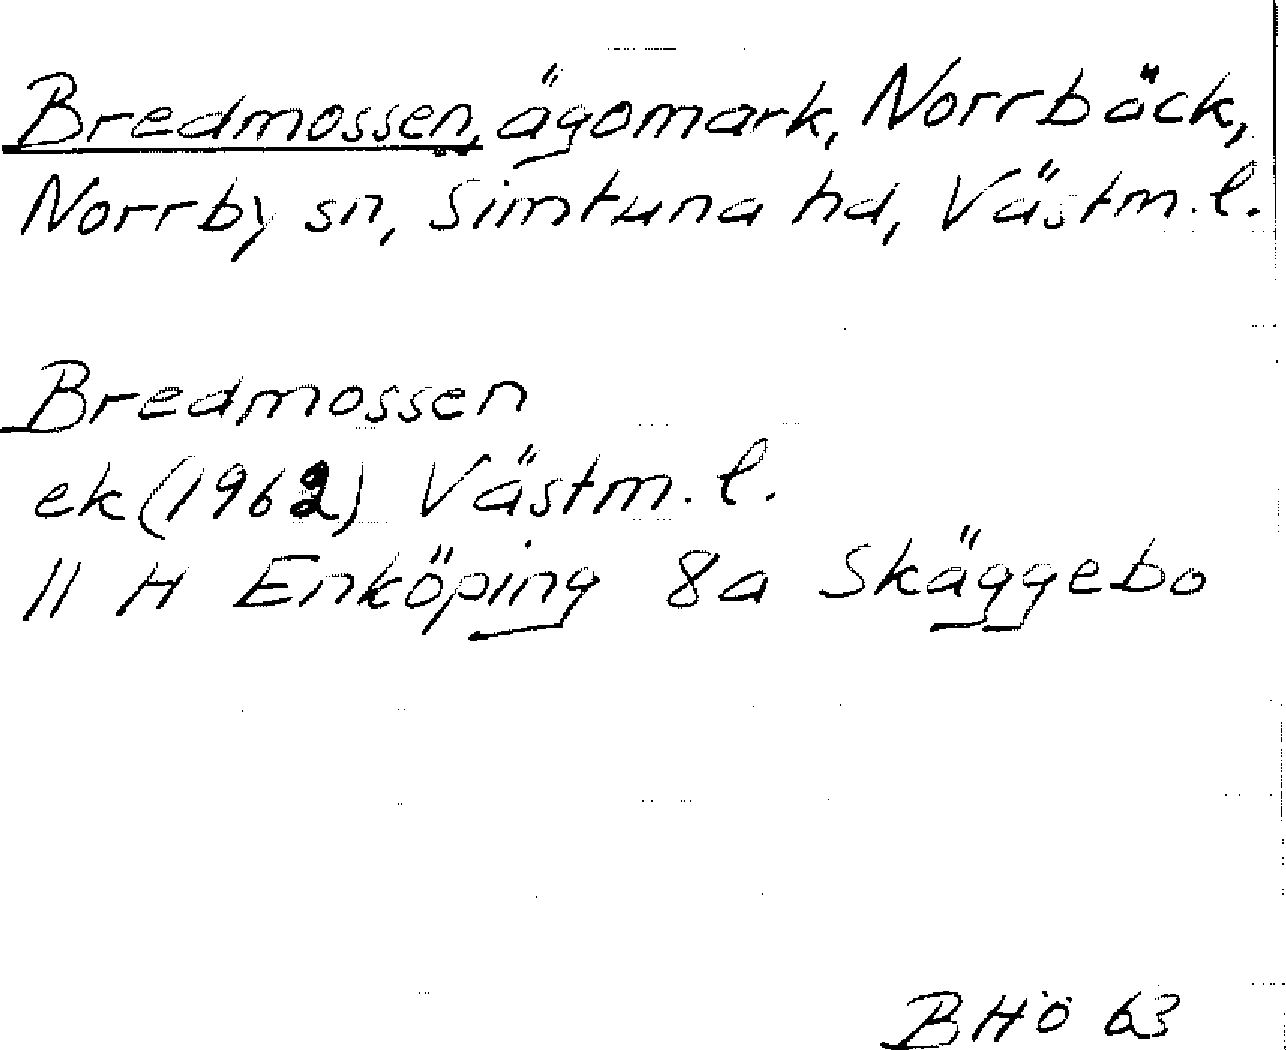 Bredmossen, ägomark, Norrbäck,
Norrby sn, Simtuna hd, Västm. l.
Bredmossen
ek (1962) Västm. l.
11 H Enköping 8a Skäggebo
BHÖ 63